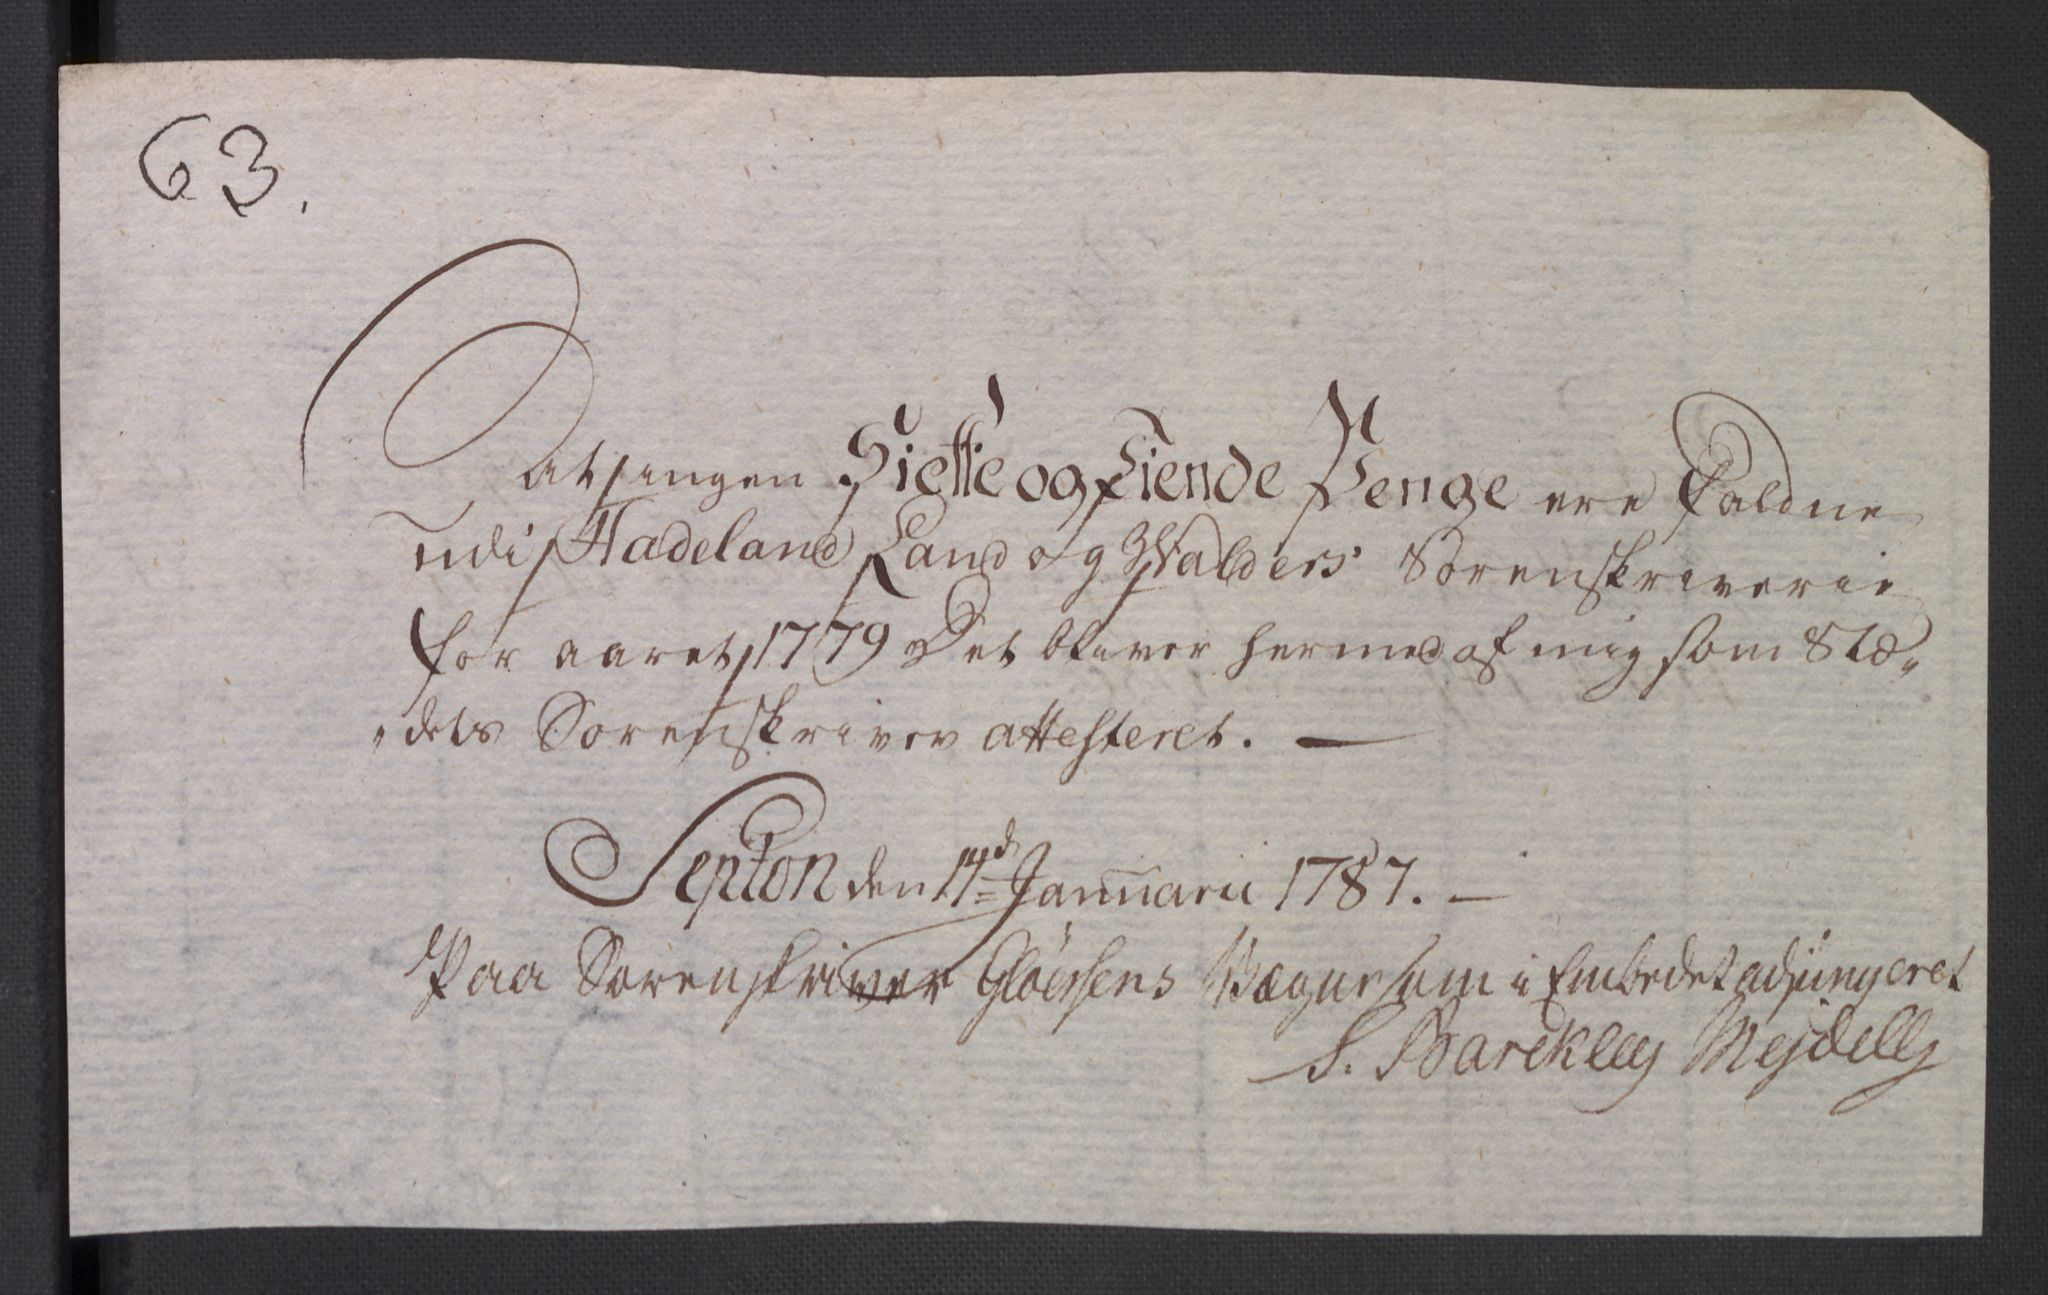 63.
At ingen Siette og Tiende Penge ere faldne
udi Hadeland Land og Walders Sorenskriverie
for aaret 1779 Det bliver hermed af mig som Stæ„
„dets Sorenskriver attesteret. —
Septon den 17d Januarii 1787. —
Paa Sorenskriver Gløersens Vegne som i Embedet adjungeret
S. Barckley Mejdell